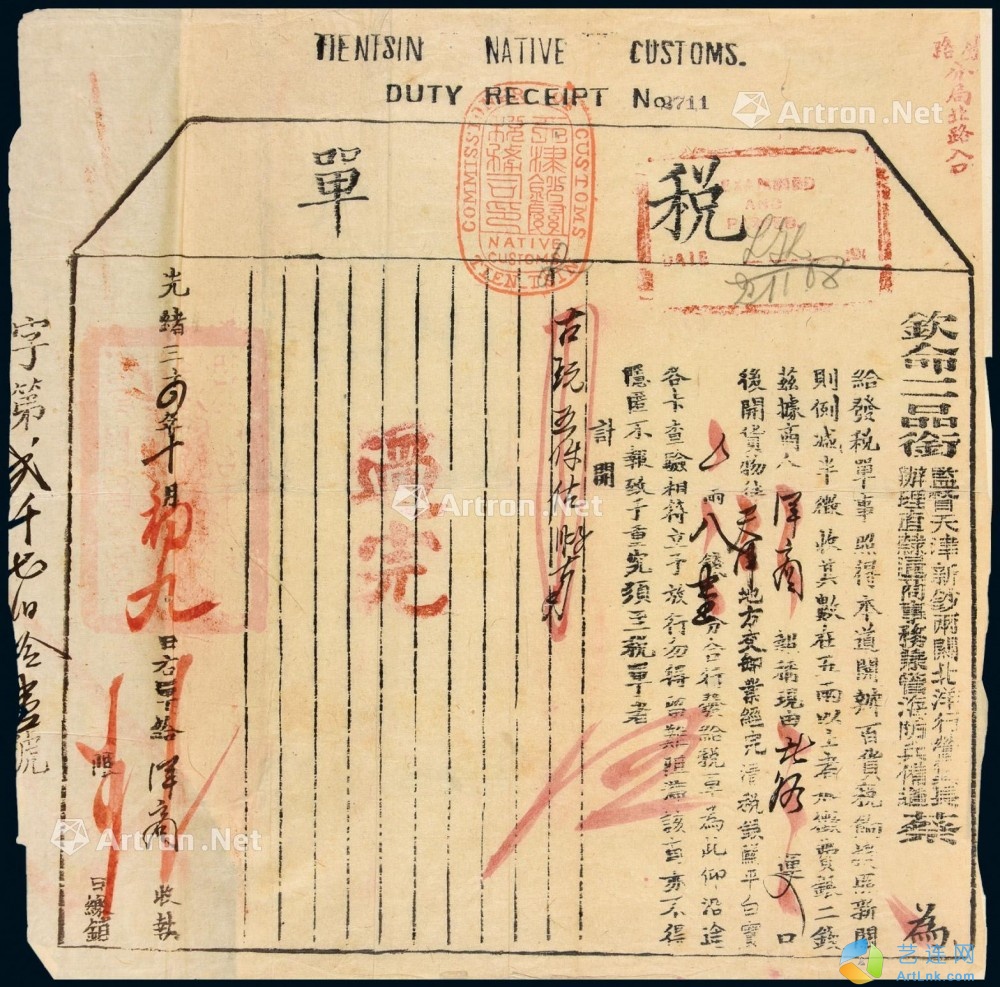 TIENTSIN NATIVE CUSTOMS.
DUTY RECEIPT No 3711
稅單
COMMISSIONER OF CUSTOMS
NATIVE
CUSTOMS
TIENTSIN
EXAMINED
AND
PASSED
DATE
2/11/08
分局北路入口
欽命二品銜
監督天津新鈔兩關北洋行營翼長
辦理直隸通商事務兼管海防兵備道
蔡為
給發稅單事照得本道開辦百貨稅餉遵照新關
則例減半徵收其數在五兩以上者加徵費銀二錢
茲據商人洋商報稱現由北路運入口
後開貨物往天津地方交卸業經完清稅銀關平白寶
兩八錢分合行發給稅單為此仰沿途
各卡查驗相符立予放行勿得留難阻滯該商亦不得
隱匿不報致干重究須至稅單者
計開
古玩五件估
兩完
光緒三十四年十月初九日右單給洋商收執
照
日繳銷
字第貳千七百拾壹號
Artron.Net
Artron.Net
Artron.Net
Artron.Net
艺连网
ArtLnk.com